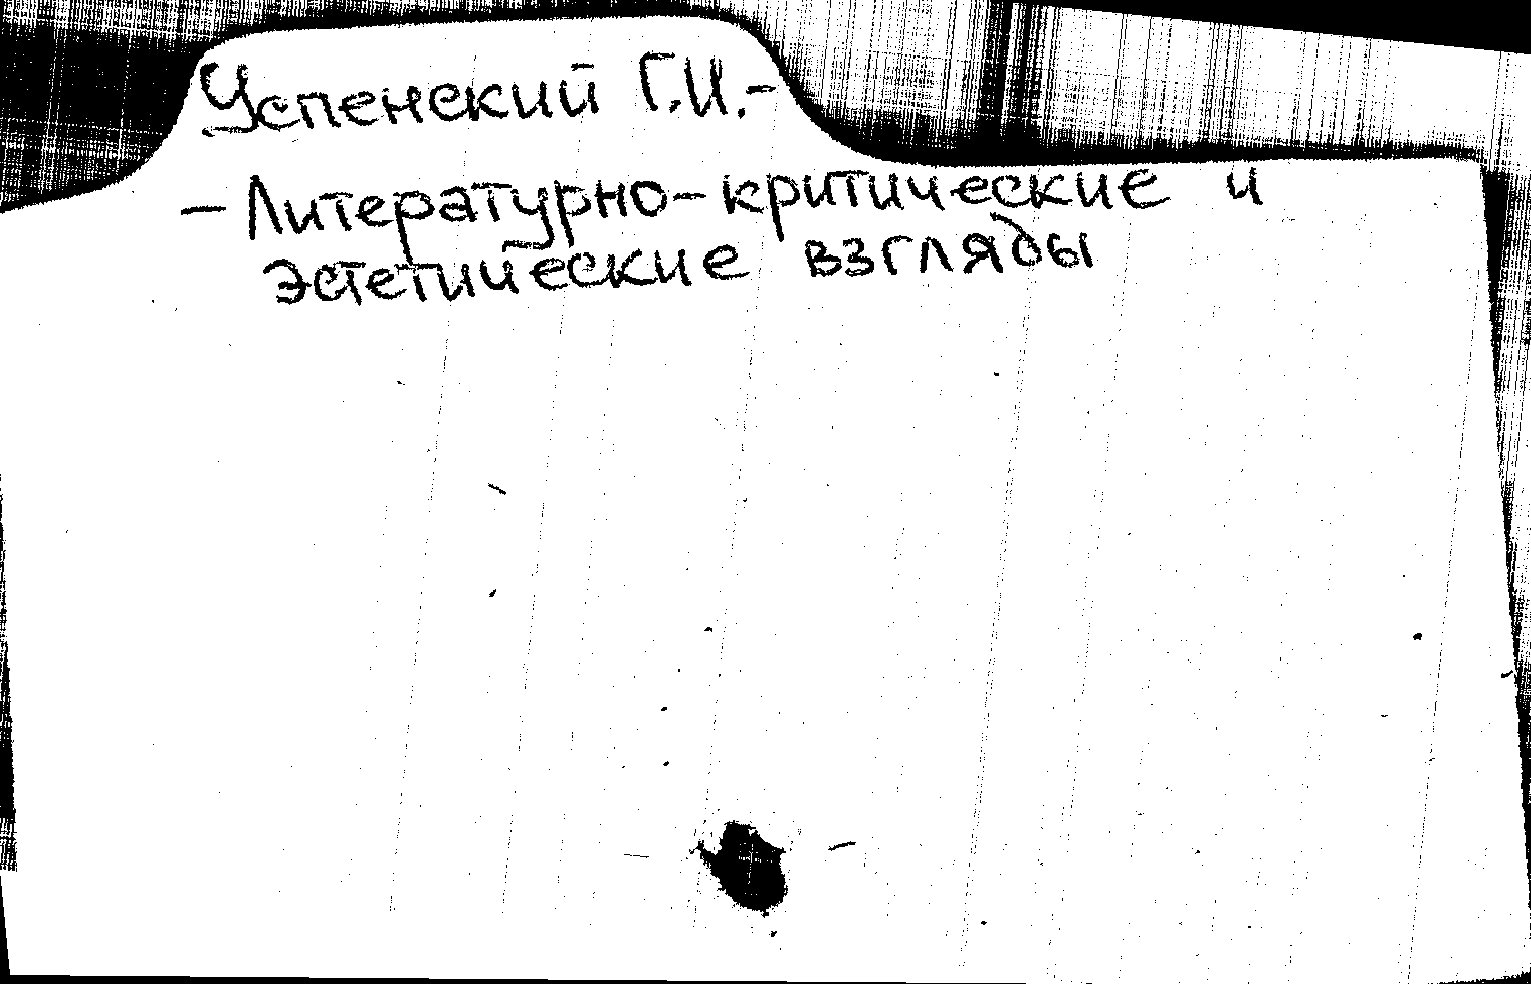 Успенский Г.И.-
- Литературно-критические и
эстетические взгляды